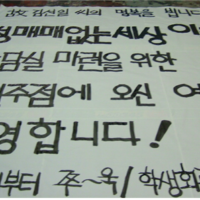 김선일 씨의 명복을 빕니다
성매매없는세상 이
담실 마련을 위한
주점에 오신 여
영합니다!
부터 쭈~욱/학생회